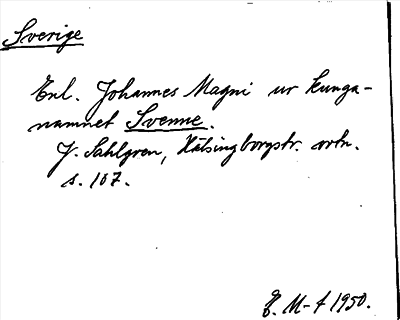 Sverige
Enl. Johannes Magni ur kunga-
namnet Svenne.
J. Sahlgren, Hälsingborgstr. ortn.
s. 107.
E. M-t 1950.